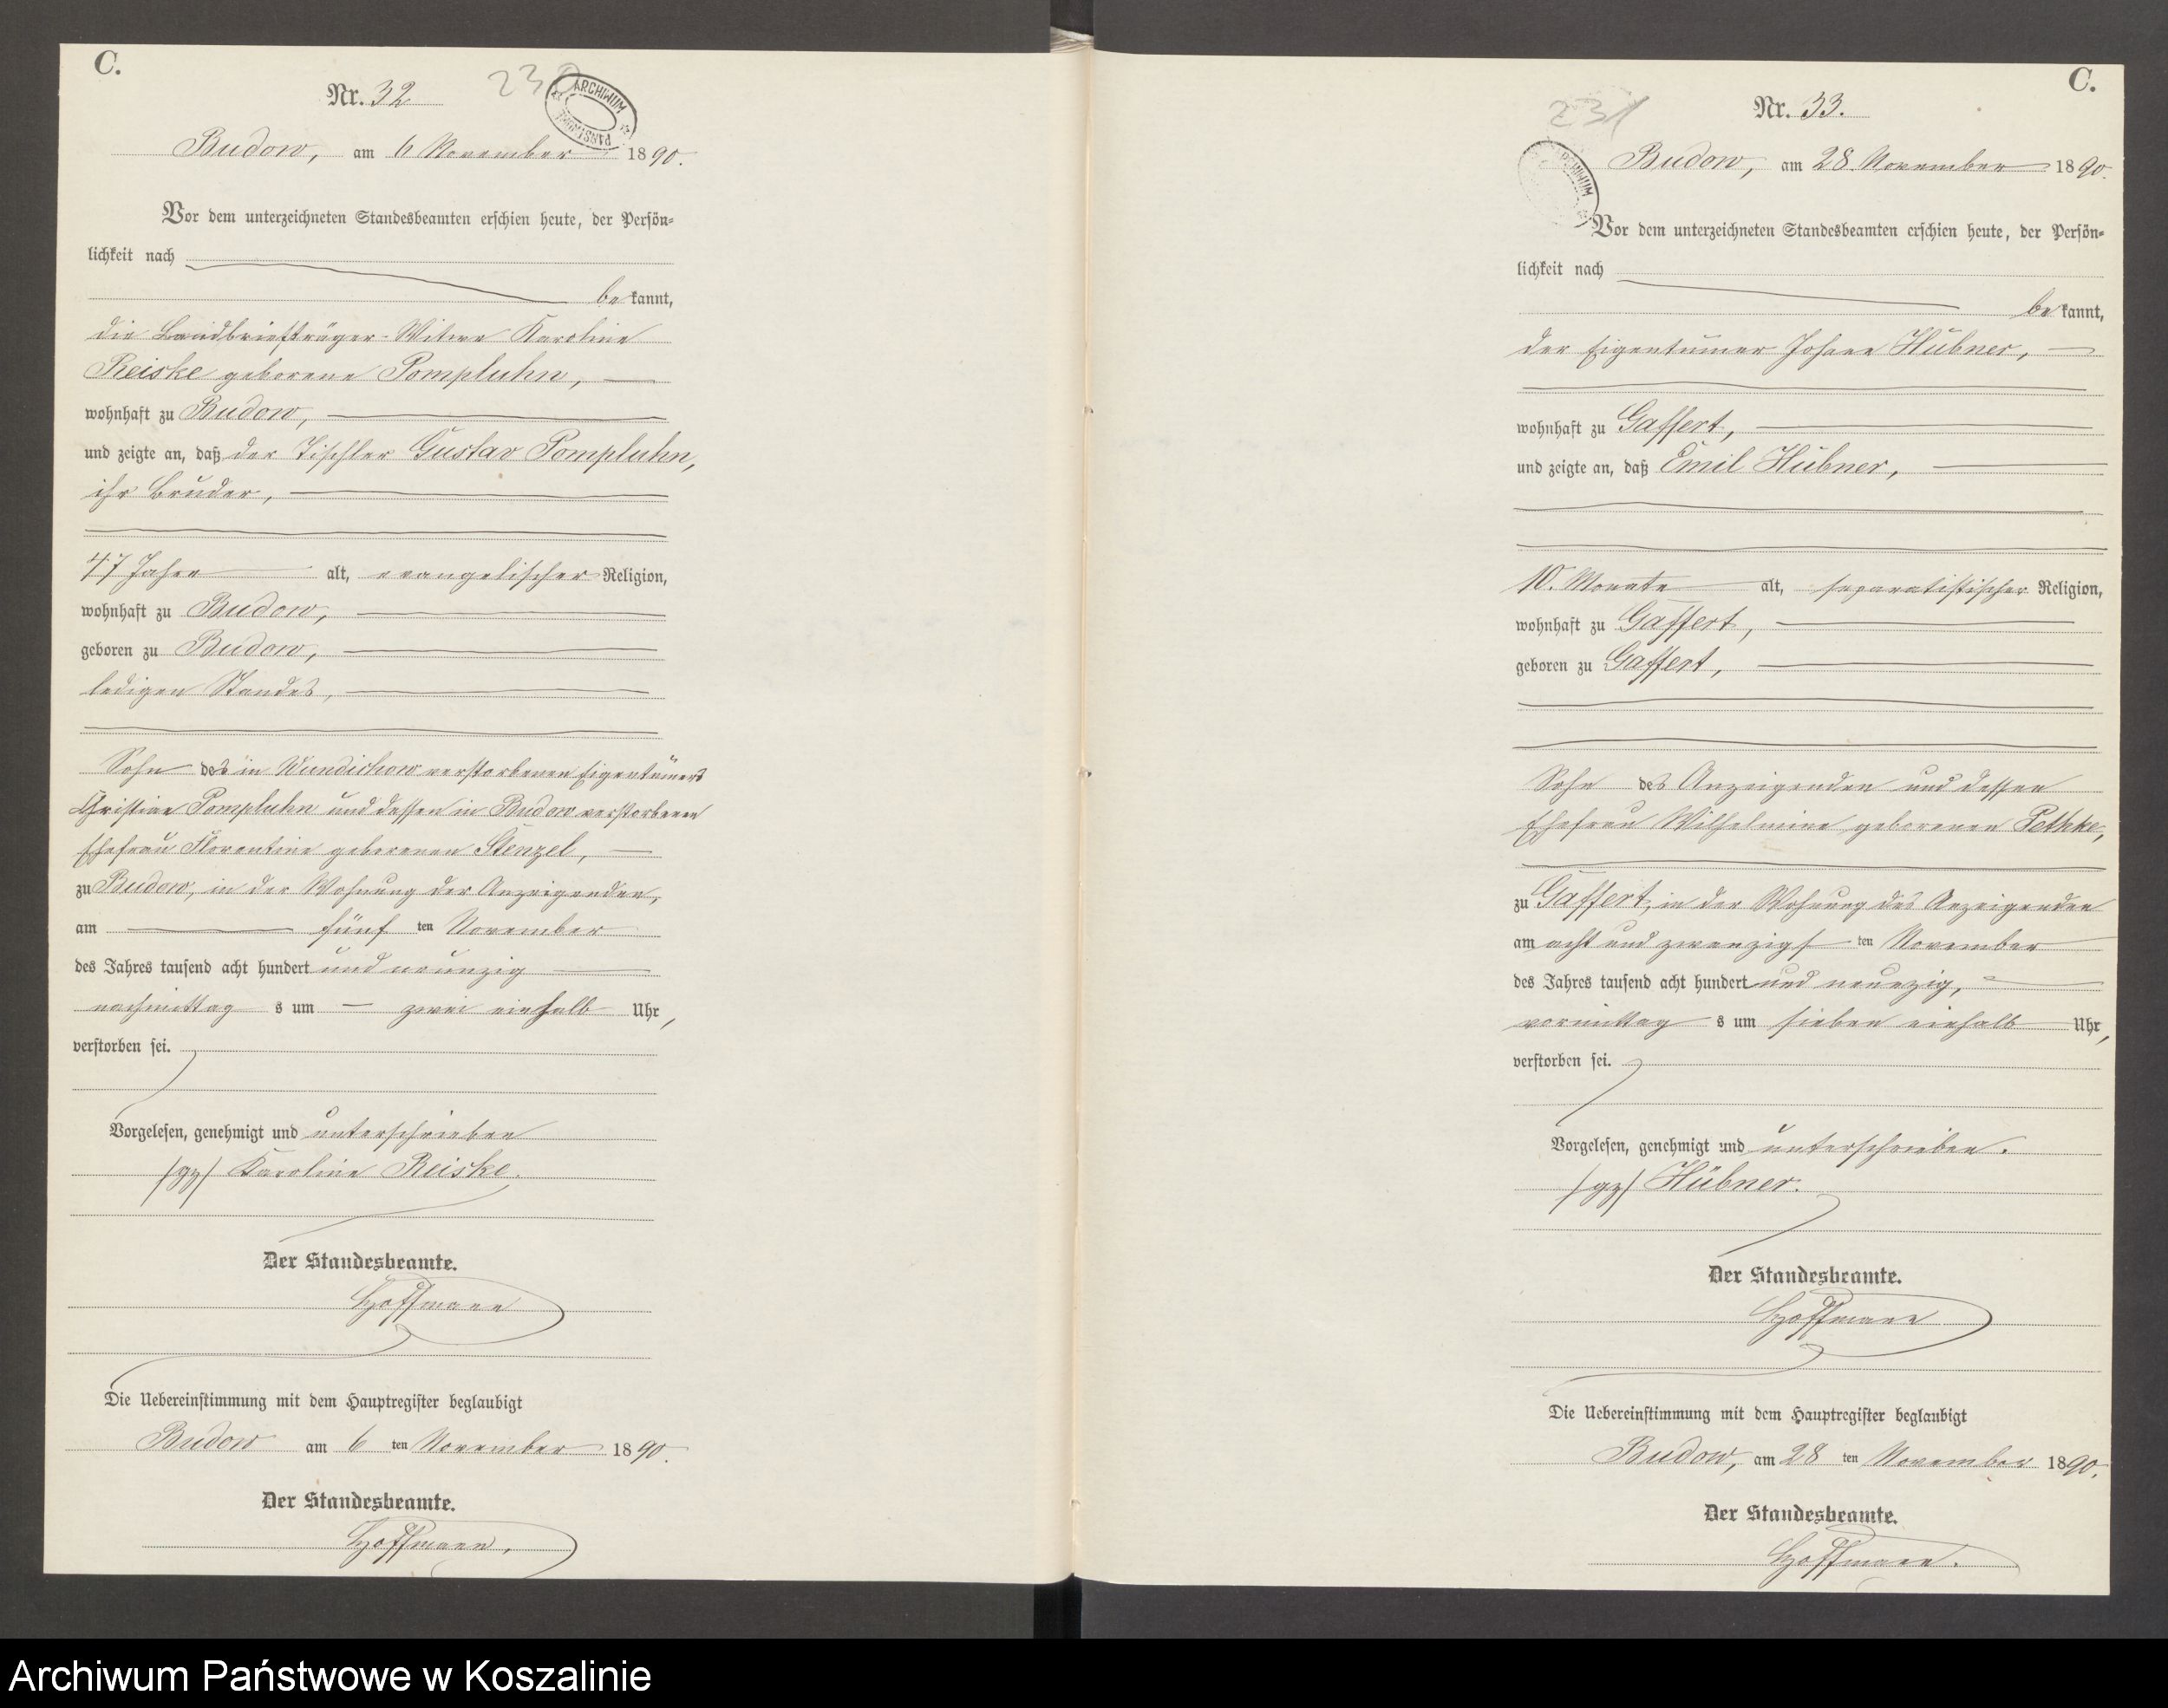 C.
Nr. 32
230
ARCHIWUM PAŃSTWOWE
Budow, am 6 November 1890.
Vor dem unterzeichneten Standesbeamten erschien heute, der Persön-
lichkeit nach
bekannt,
die Landbriefträger-Witwe Karoline
Reiske geborene Pompluhn,
wohnhaft zu Budow,
und zeigte an, daß der Tischler Gustav Pompluhn,
ihr Bruder,
47 Jahre alt, evangelischer Religion,
wohnhaft zu Budow,
geboren zu Budow,
ledigen Standes,
Sohn des in Wundichow verstorbenen Eigentümers
Christian Pompluhn und dessen in Budow verstorbenen
Ehefrau Florentine geborenen Stenzel,
zu Budow, in der Wohnung der Anzeigenden,
am fünften November
des Jahres tausend acht hundert und neunzig
nachmittags um zwei einhalb Uhr,
verstorben sei.
Vorgelesen, genehmigt und unterschrieben
/gz/ Karoline Reiske.
Der Standesbeamte.
Hoffmann
Die Uebereinstimmung mit dem Hauptregister beglaubigt
Budow am 6 ten November 1890.
Der Standesbeamte.
Hoffmann.
C.
Nr. 33.
231
ARCHIWUM
Budow, am 28 November 1890.
Vor dem unterzeichneten Standesbeamten erschien heute, der Persön-
lichkeit nach
bekannt,
der Eigentümer Johann Hübner,
wohnhaft zu Gaffert,
und zeigte an, daß Emil Hübner,
10. Monate alt, separatistischer Religion,
wohnhaft zu Gaffert,
geboren zu Gaffert,
Sohn des Anzeigenden und dessen
Ehefrau Wilhelmine geborenen Pethke,
zu Gaffert, in der Wohnung des Anzeigenden
am acht und zwanzigsten November
des Jahres tausend acht hundert und neunzig,
vormittags um sieben einhalb Uhr,
verstorben sei.
Vorgelesen, genehmigt und unterschrieben.
/gz/ Hübner.
Der Standesbeamte.
Hoffmann
Die Uebereinstimmung mit dem Hauptregister beglaubigt
Budow, am 28 ten November 1890.
Der Standesbeamte.
Hoffmann.
Archiwum Państwowe w Koszalinie